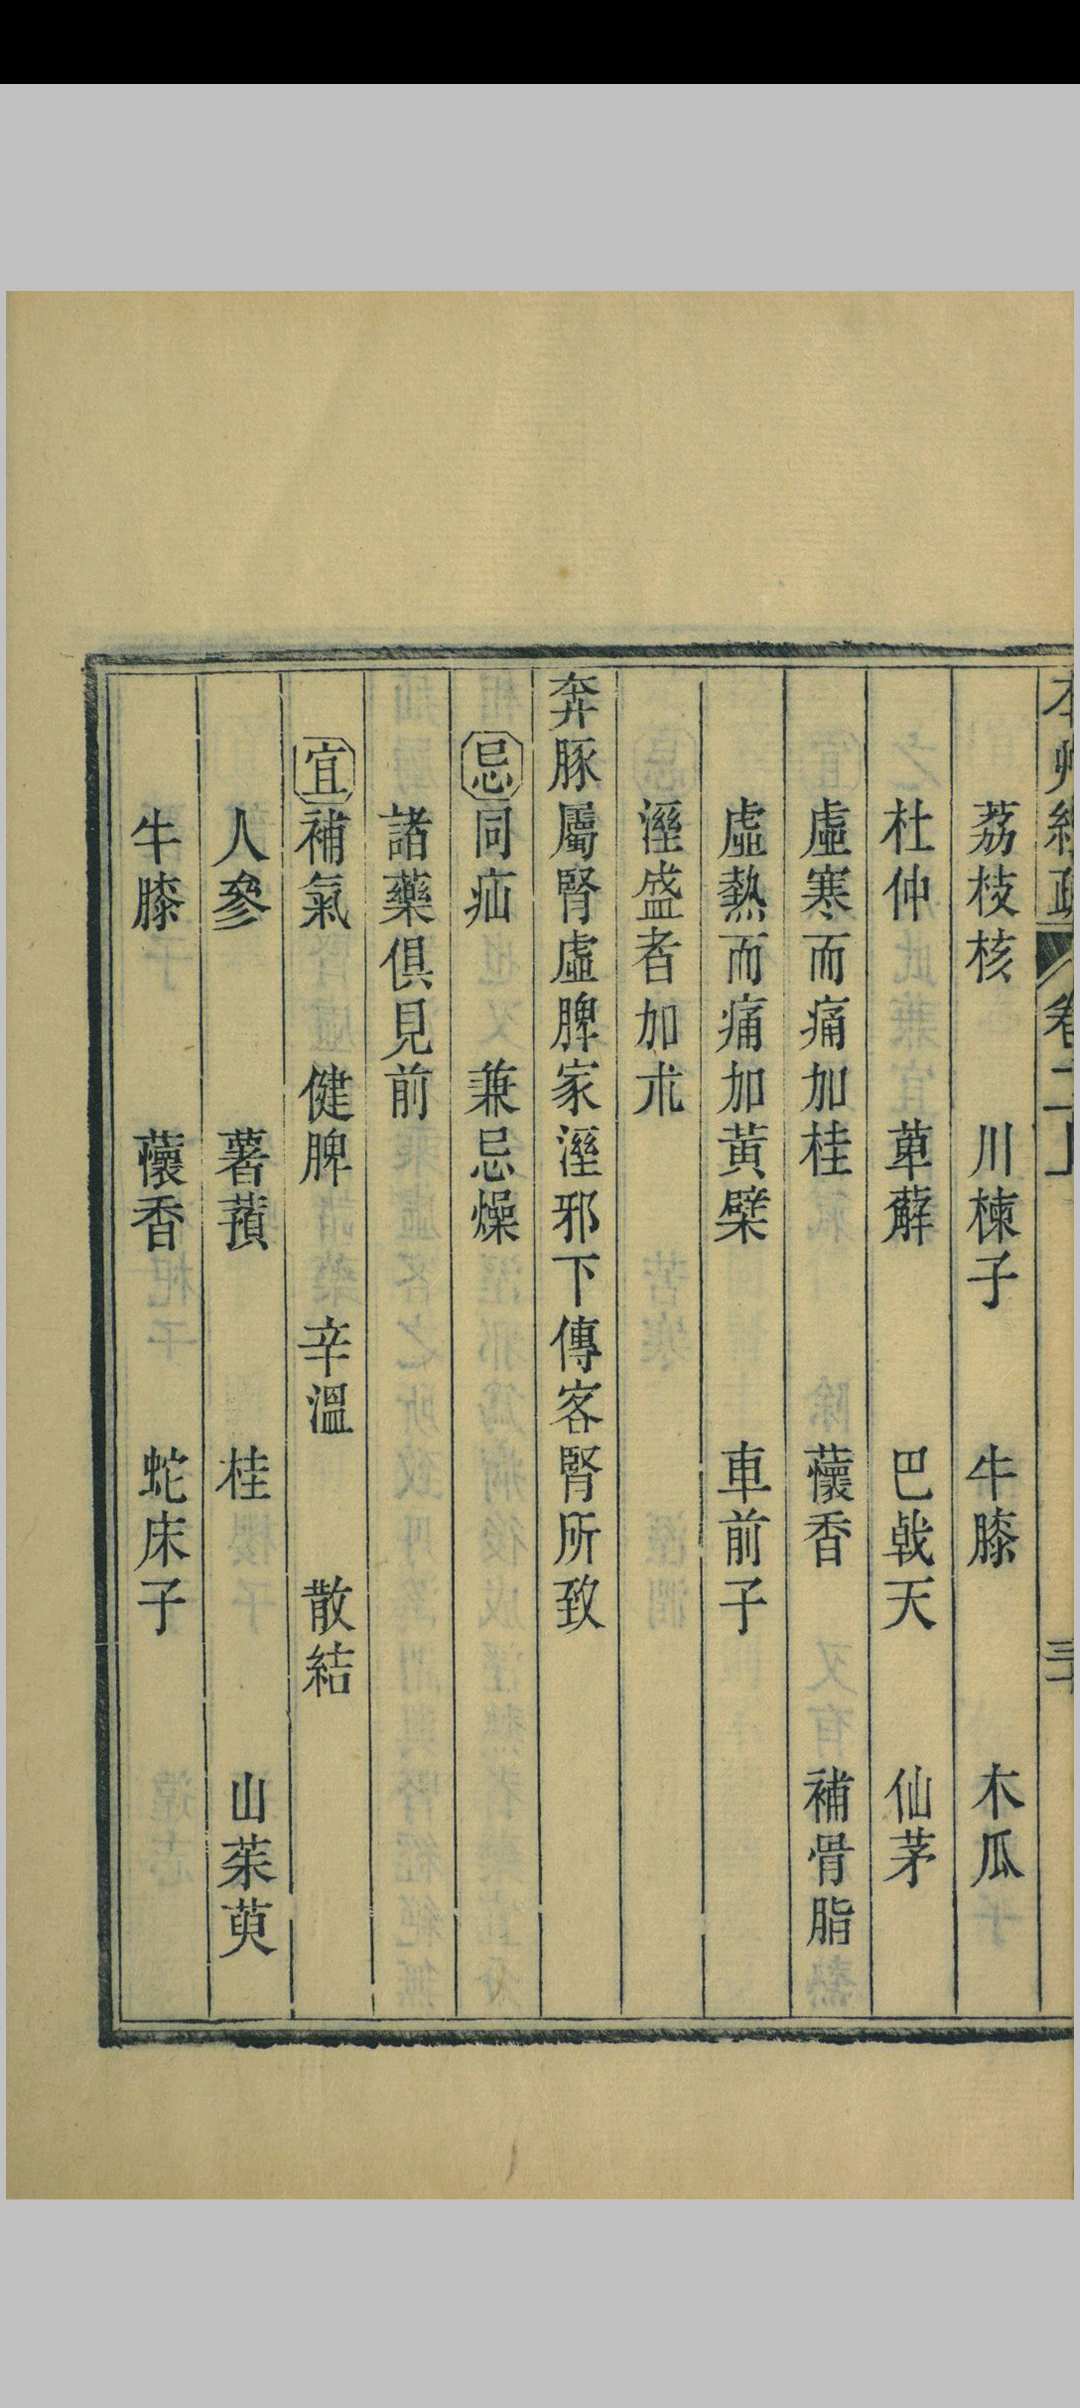 荔枝核 川楝子 牛膝 木瓜
杜仲 萆薢 巴戟天 仙茅
虛寒而痛加桂 蘹香 補骨脂
虛熱而痛加黃檗 車前子
溼盛者加朮
奔豚屬腎虛脾家溼邪下傳客腎所致
忌同疝 兼忌燥
諸藥俱見前
宜補氣 健脾 辛溫 散結
人參 薯蕷 桂 山茱萸
牛膝 蘹香 蛇床子